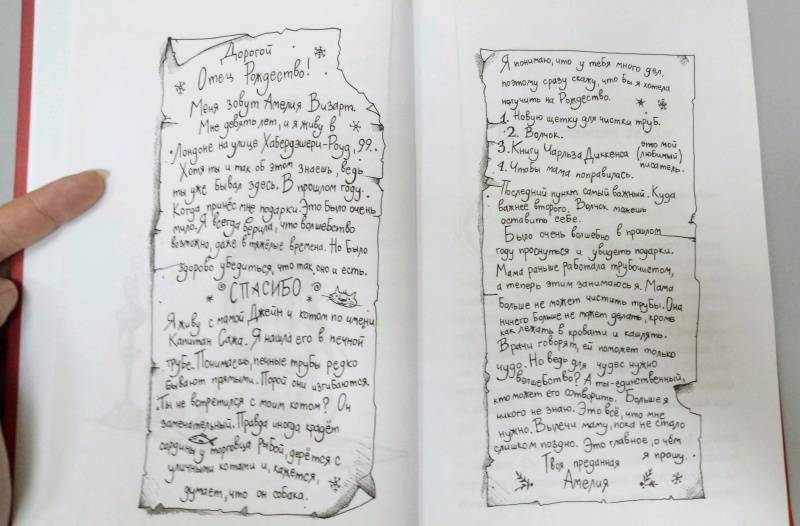 Дорогой
Отец Рождество!
Меня зовут Амелия Визарт.
Мне девять лет, и я живу в
Лондоне на улице Хабердэшери-Роуд, 99.
Хотя ты и так об этом знаешь, ведь
ты уже бывал здесь. В прошлом году.
Когда принёс мне подарки. Это было очень
мило. Я всегда верила, что волшебство
возможно, даже в тяжёлые времена. Но было
здорово убедиться, что так оно и есть.
СПАСИБО
Я живу с мамой Джейн и котом по имени
Капитан Сажа. Я нашла его в печной
трубе. Понимаешь, печные трубы редко
бывают прямыми. Порой они изгибаются.
Ты не встретился с моим котом? Он
замечательный. Правда иногда крадёт
сардины у торговца рыбой, дерётся с
уличными котами и, кажется,
думает, что он собака.
Я понимаю, что у тебя много дел,
поэтому сразу скажу, что бы я хотела
получить на Рождество.
1. Новую щетку для чистки труб.
2. Волчок.
3. Книгу Чарльза Диккенса (это мой любимый писатель.)
4. Чтобы мама поправилась.
Последний пункт самый важный. Куда
важнее второго. Волчок можешь
оставить себе.
Было очень волшебно в прошлом
году проснуться и увидеть подарки.
Мама раньше работала трубочистом,
а теперь этим занимаюсь я. Мама
больше не может чистить трубы. Она
ничего больше не может делать, кроме
как лежать в кровати и кашлять.
Врачи говорят, ей поможет только
чудо. Но ведь для чудес нужно
волшебство? А ты-единственный,
кто может его сотворить. Больше я
никого не знаю. Это всё, что мне
нужно. Вылечи маму, пока не стало
слишком поздно. Это главное, о чём
я прошу.
Твоя преданная
Амелия